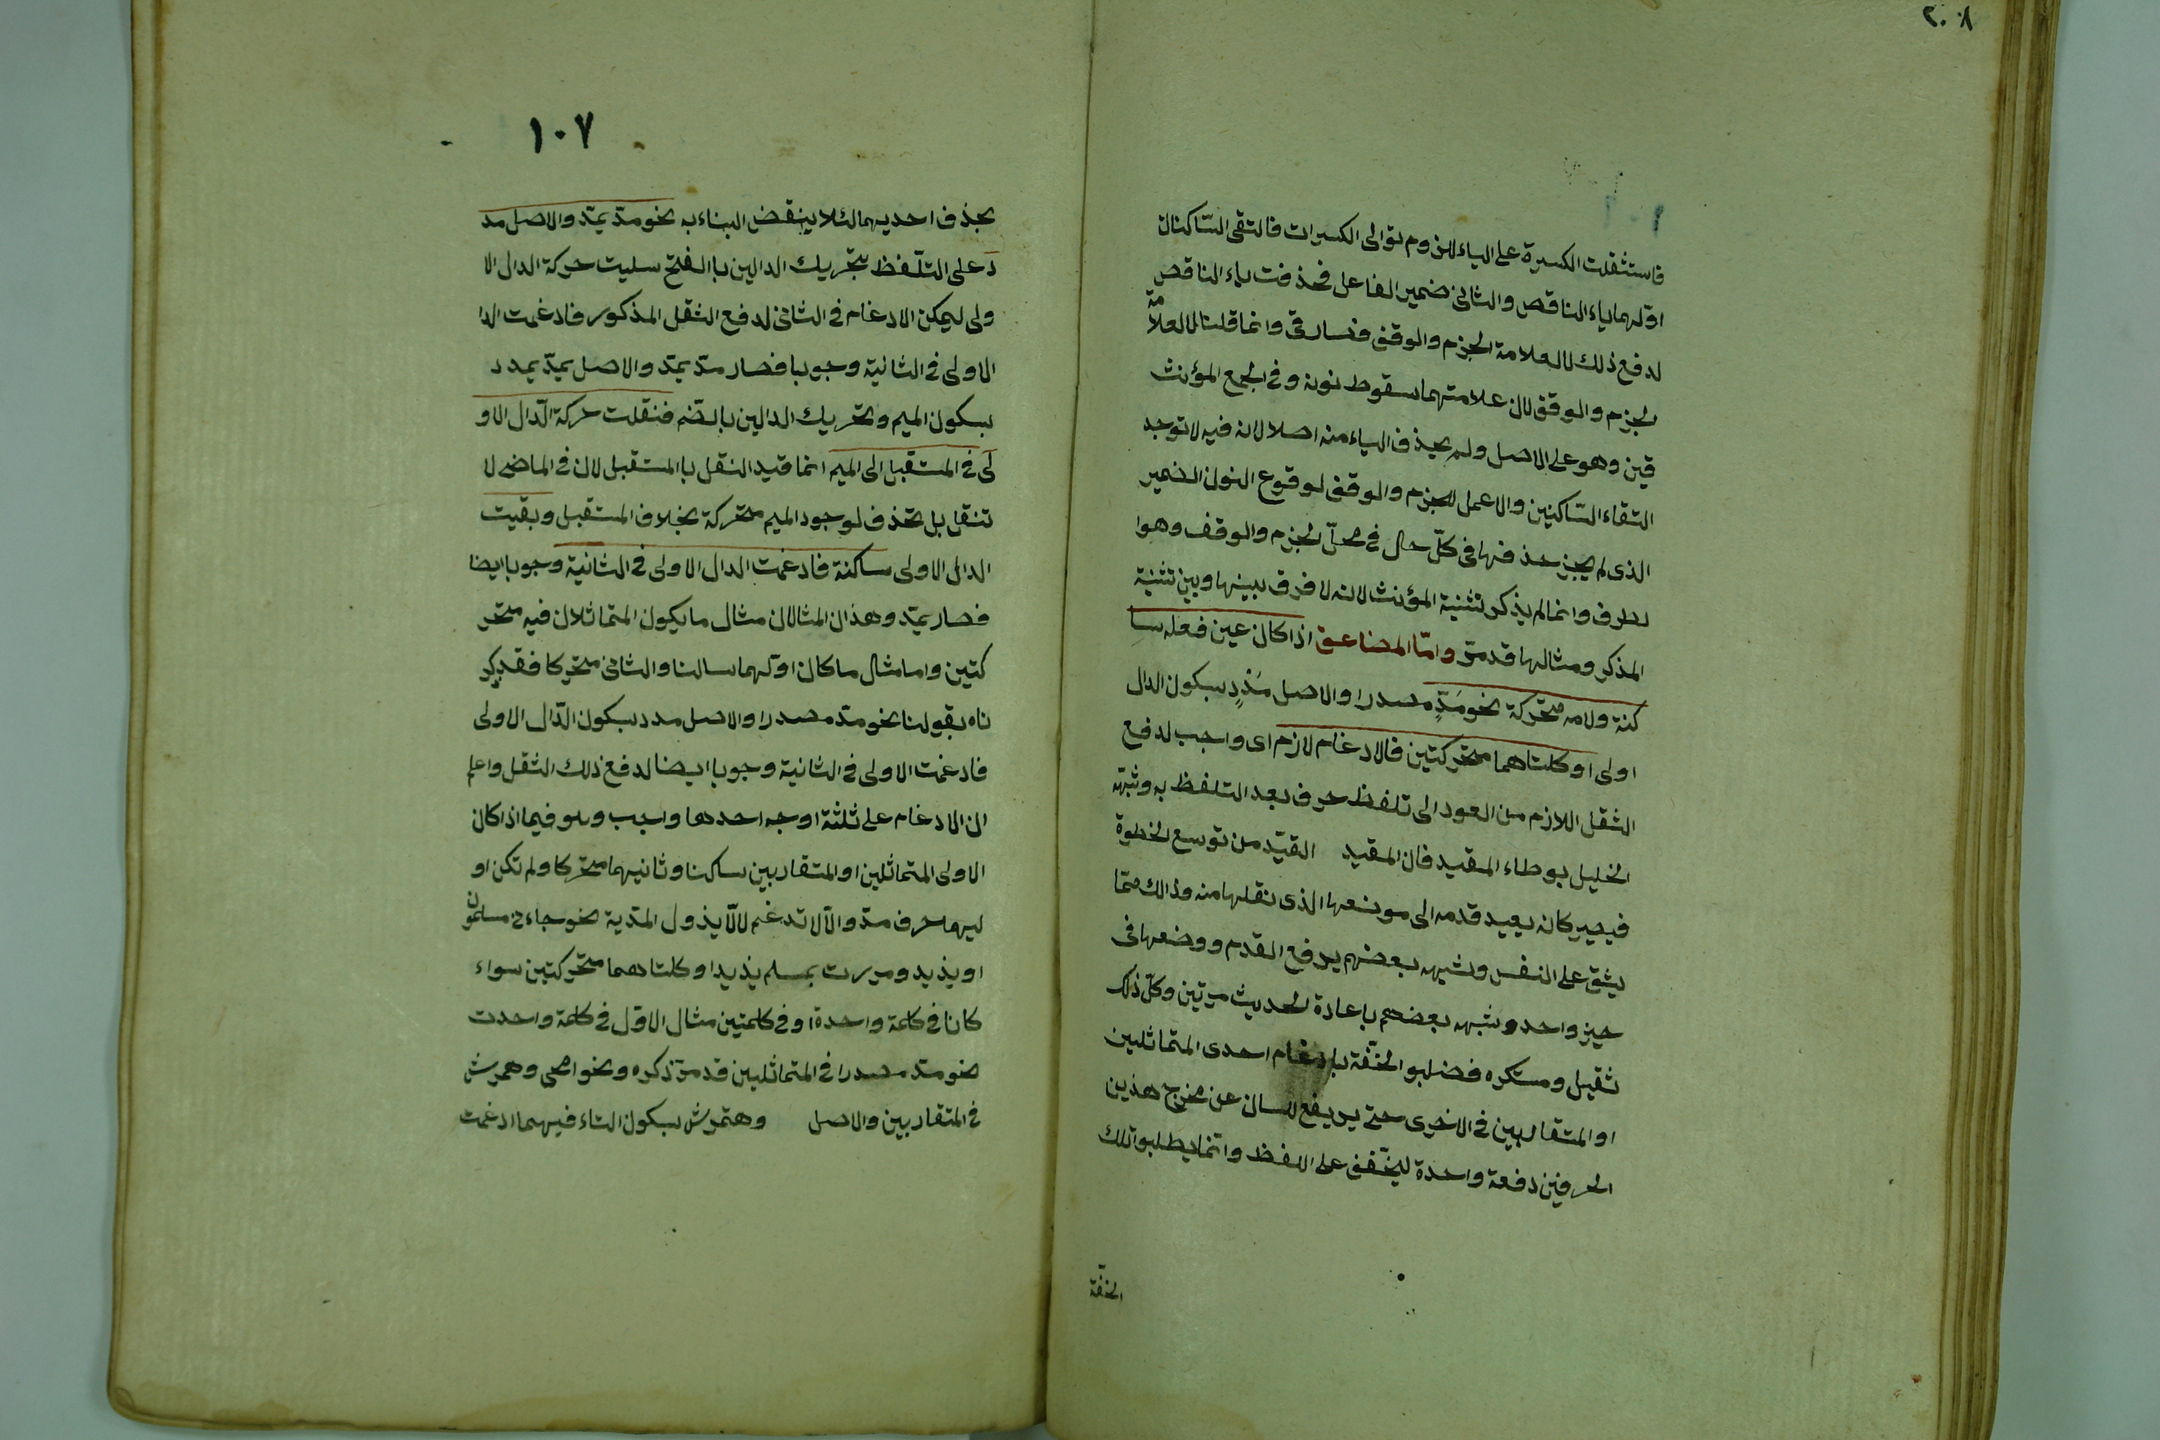 ٢٠٨
فاستثقلت الكسرة على الياء للزوم توالى الكسرات فالتقى السّاكنان
اوّلهما ياء الناقص والثانى ضمير الفاعل فحذفت ياء الناقص
لدفع ذلك لا لعلامة الجزم والوقف وانما قلنا لا لعلامة
الجزم والوقف لان علامتهما سقوط نونه وفى الجمع المؤنث
قين وهو على الاصل ولم يحذف الياء منه اصلا لانه فيه لا توجد
التقاء السّاكنين والاعمل للجزم والوقف لوقوع النون الضمير
الذى لم يجز حذفها فى كلّ حال فى محلّ الجزم والوقف وهوا
لطرف وانما لم يذكر تثنية المؤنث لانه لا فرق بينها وبين تثنية
المذكر ومثالها قد مرّ وامّا المضاعف اذا كان عين فعله سا
كنة ولامه متحّركة نحو مَدٍّ مصدرا والاصل مَدْدٍ بسكون الدال
اولى او كلتاهما متحركتين فالادغام لازم اى واجب لدفع
الثقل اللازم من العود الى تلفظ حرف بعد التلفظ به وشبّهه
الخليل بوطاء المقيد فان المقيد القيّد من توسع الخطوة
فيصير كانه يعيد قدمه الى موضعها الذى نقلها منه وذالك ممّا
يشق على النفس وشبهه بعضهم برفع القدم ووضعها فى
حيز واحد وشبهه بعضهم باعادة الحديث مرتين وكلّ ذلك
ثقيل ومستكره فضلبو الخفّة بادغام احدى المتماثلين
او المتقاربين فى الاخرى حتى يرفع السان عن مخرج هذين
الحرفين دفعة واحدة ليخفّف على اللفظ وانّما يطلبو تلك
الخفّة
١٠٧
بحذف احديهما لئلا ينقض البناء به نحو مدّ يمدّ والاصل مد
دَ على التلّفظ بتحريك الدالين باالفتح سلبت حركة الدال الا
ولى ليمكن الادغام فى الثانى لدفع الثقل المذكور فادغمت الدا
الاولى فى الثانية وجوبا فصار مدّ يمدّ والاصل يمدّ يمدد
بسكون الميم وتحريك الدالين بالضّم فنقلت حركة الدّال الاو
لَى فى المستقبل الى الميم انما قيد النقل باالمستقبل لان فى الماضى لا
تنقل بل تحذف لوجود الميم متحركة بخلاف المستقبل وبقيت
الدال الاولى ساكنة فادغمت الدال الاولى فى الثانية وجوبا ايضا
فصار يمدّ وهذان المثالان مثال ما يكون المتماثلان فيه متحر
كتين واما مثال ما كان اوّلهما ساكنا والثانى متحركا فقد ذكر
ناه بقولنا نحو مدّ مصدرا والاصل مدد بسكون الدّال الاولى
فادغمت الاولى فى الثانية وجوبا ايضا لدفع ذلك الثقل واعلم
ان الادغام على ثلثة اوجه احدها واجب وهو فيما اذا كان
الاولى المتماثلين او المتقاربين ساكنا وثانيهما متحركا ولم تكن او
ليهما حرف مدّ والّا لا تدغم لالّا يذول المدّية نحو جاءنى مسلمون
او يذيد ومررت بمسلم يذيد او كلتاهما متحركتين سواء
كانا فى كلمة واحدة او فى كلمتين مثال الاوّل فى كلمة واحدت
نحو مدّ مصدرا فى المتماثلين قد مرّ ذكره ونحو امحى وهمرش
فى المتقاربين والاصل وهنمرش بسكون التاء فيهما ادغمت